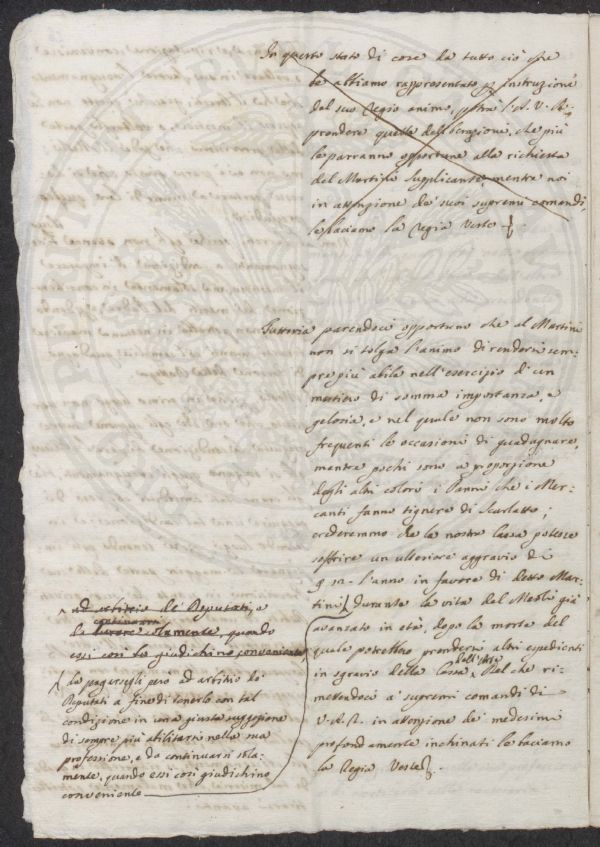 In questo stato di cose da tutto ciò che
le abbiamo rappresentato p instruzione
del suo Regio animo, potrà l'A. V. R.
prendere quelle deliberazioni, che più
le parranno opportune alla richiesta
del Martini supplicante, mentre noi
in attenzione de' suoi supremi comandi,
le baciamo la Regia Veste
Tuttavia parendoci opportuno che al Martini
non si tolga l'animo di rendersi sem-
pre più abile nell'esercizio d'un
mestiero di somma importanza, e
gelosia, e nel quale non sono molto
frequenti le occasioni di guadagnare,
mentre pochi sono a proporzione
degli altri colori i Panni che i Mer-
canti fanno tignere di Scarlatto;
crederemmo che la nostra Cassa potesse
soffrire un ulteriore aggravio di
l'anno in favore di detto Mar-
tini, durante la vita del già
avanzato in età, dopo la morte del
quale potrebbero prendersi altri espedienti
in sgravio della Cassa dell'Arte. Del che ri-
mettendoci a' supremi comandi di
V. A. R. in attenzione de' medesimi
profondamente inchinati le baciamo
la Regia Veste
ad arbitrio de' Deputati, e
continuarsi
solamente, quando
essi così lo giudichino conveniente
da pagarsegli però ad arbitrio de'
Deputati a fine di tenerlo con tal
condizione in una giusta suggezione
di sempre più abilitarsi nella sua
professione, e da continuarsi sola-
mente, quando essi così giudichino
conveniente